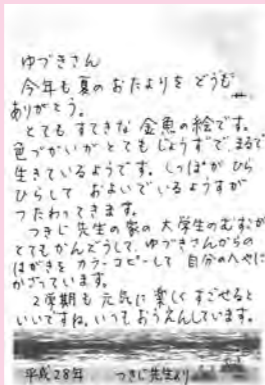 ゆづきさん
今年も夏のおたよりをどうも
ありがとう。
とてもすてきな金魚の絵です。
色づかいがとてもじょうずで、まるで
生きているようです。しっぽがひら
ひらして およいでいるようすが
つたわってきます。
つきじ先生の家の大学生のむすこが
とてもかんどうして、ゆづきさんからの
はがきを カラーコピーして 自分のへやに
かざっています。
2学期も元気に楽しくすごせると
いいですね。いつもおうえんしています。
平成28年 つきじ先生より